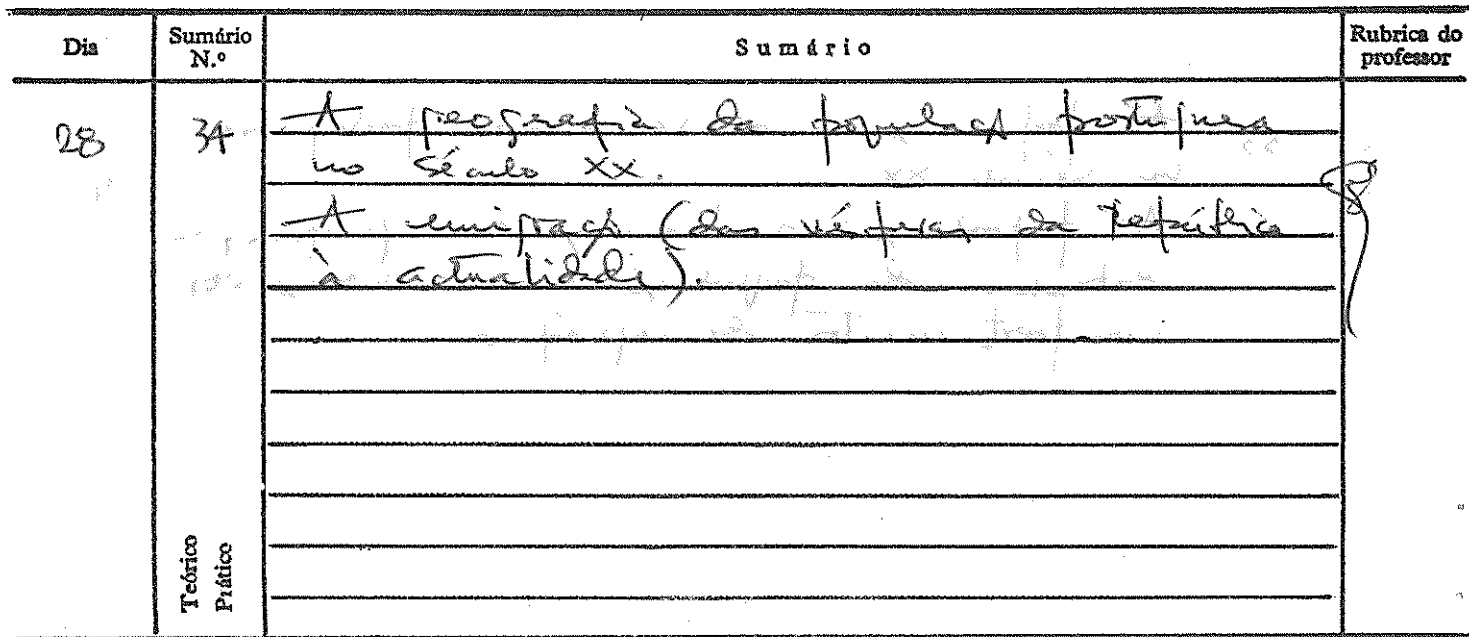 Dia
Sumário N.º
Sumário
Rubrica do professor
28
34
A geografia da população portuguesa
no século XX.
A emigração (das vésperas da República
à actualidade).
Teórico
Prático